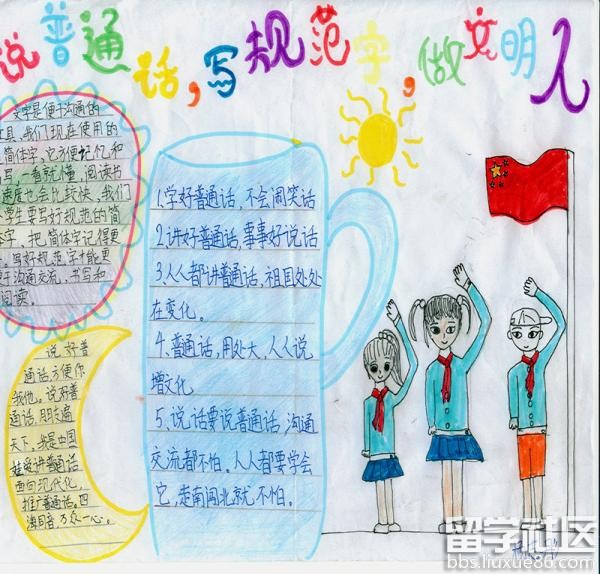 说普通话,写规范字,做文明人
文字是便于沟通的
工具,我们现在使用的
是简体字,它方便记忆和
书写,一看就懂,阅读书
速度也会比较快,我们
小学生要写好规范的简
体字,把简体字记得更
写好规范字才能更
便于沟通交流、书写和
阅读。
说好普
通话,方便你
我他。说好普
通话,朋友遍
天下。我是中国
娃爱讲普通话。
面向现代化,
推广普通话。四
海同音,万众一心。
1.学好普通话,不会闹笑话
2.讲好普通话,事事好说话
3.人人都讲普通话,祖国处处
在变化。
4、普通话,用处大,人人说
增文化
5、说话要说普通话,沟通
交流都不怕。人人都要学会
它,走南闯北就不怕。
留学社区
bbs.liuxue86.com